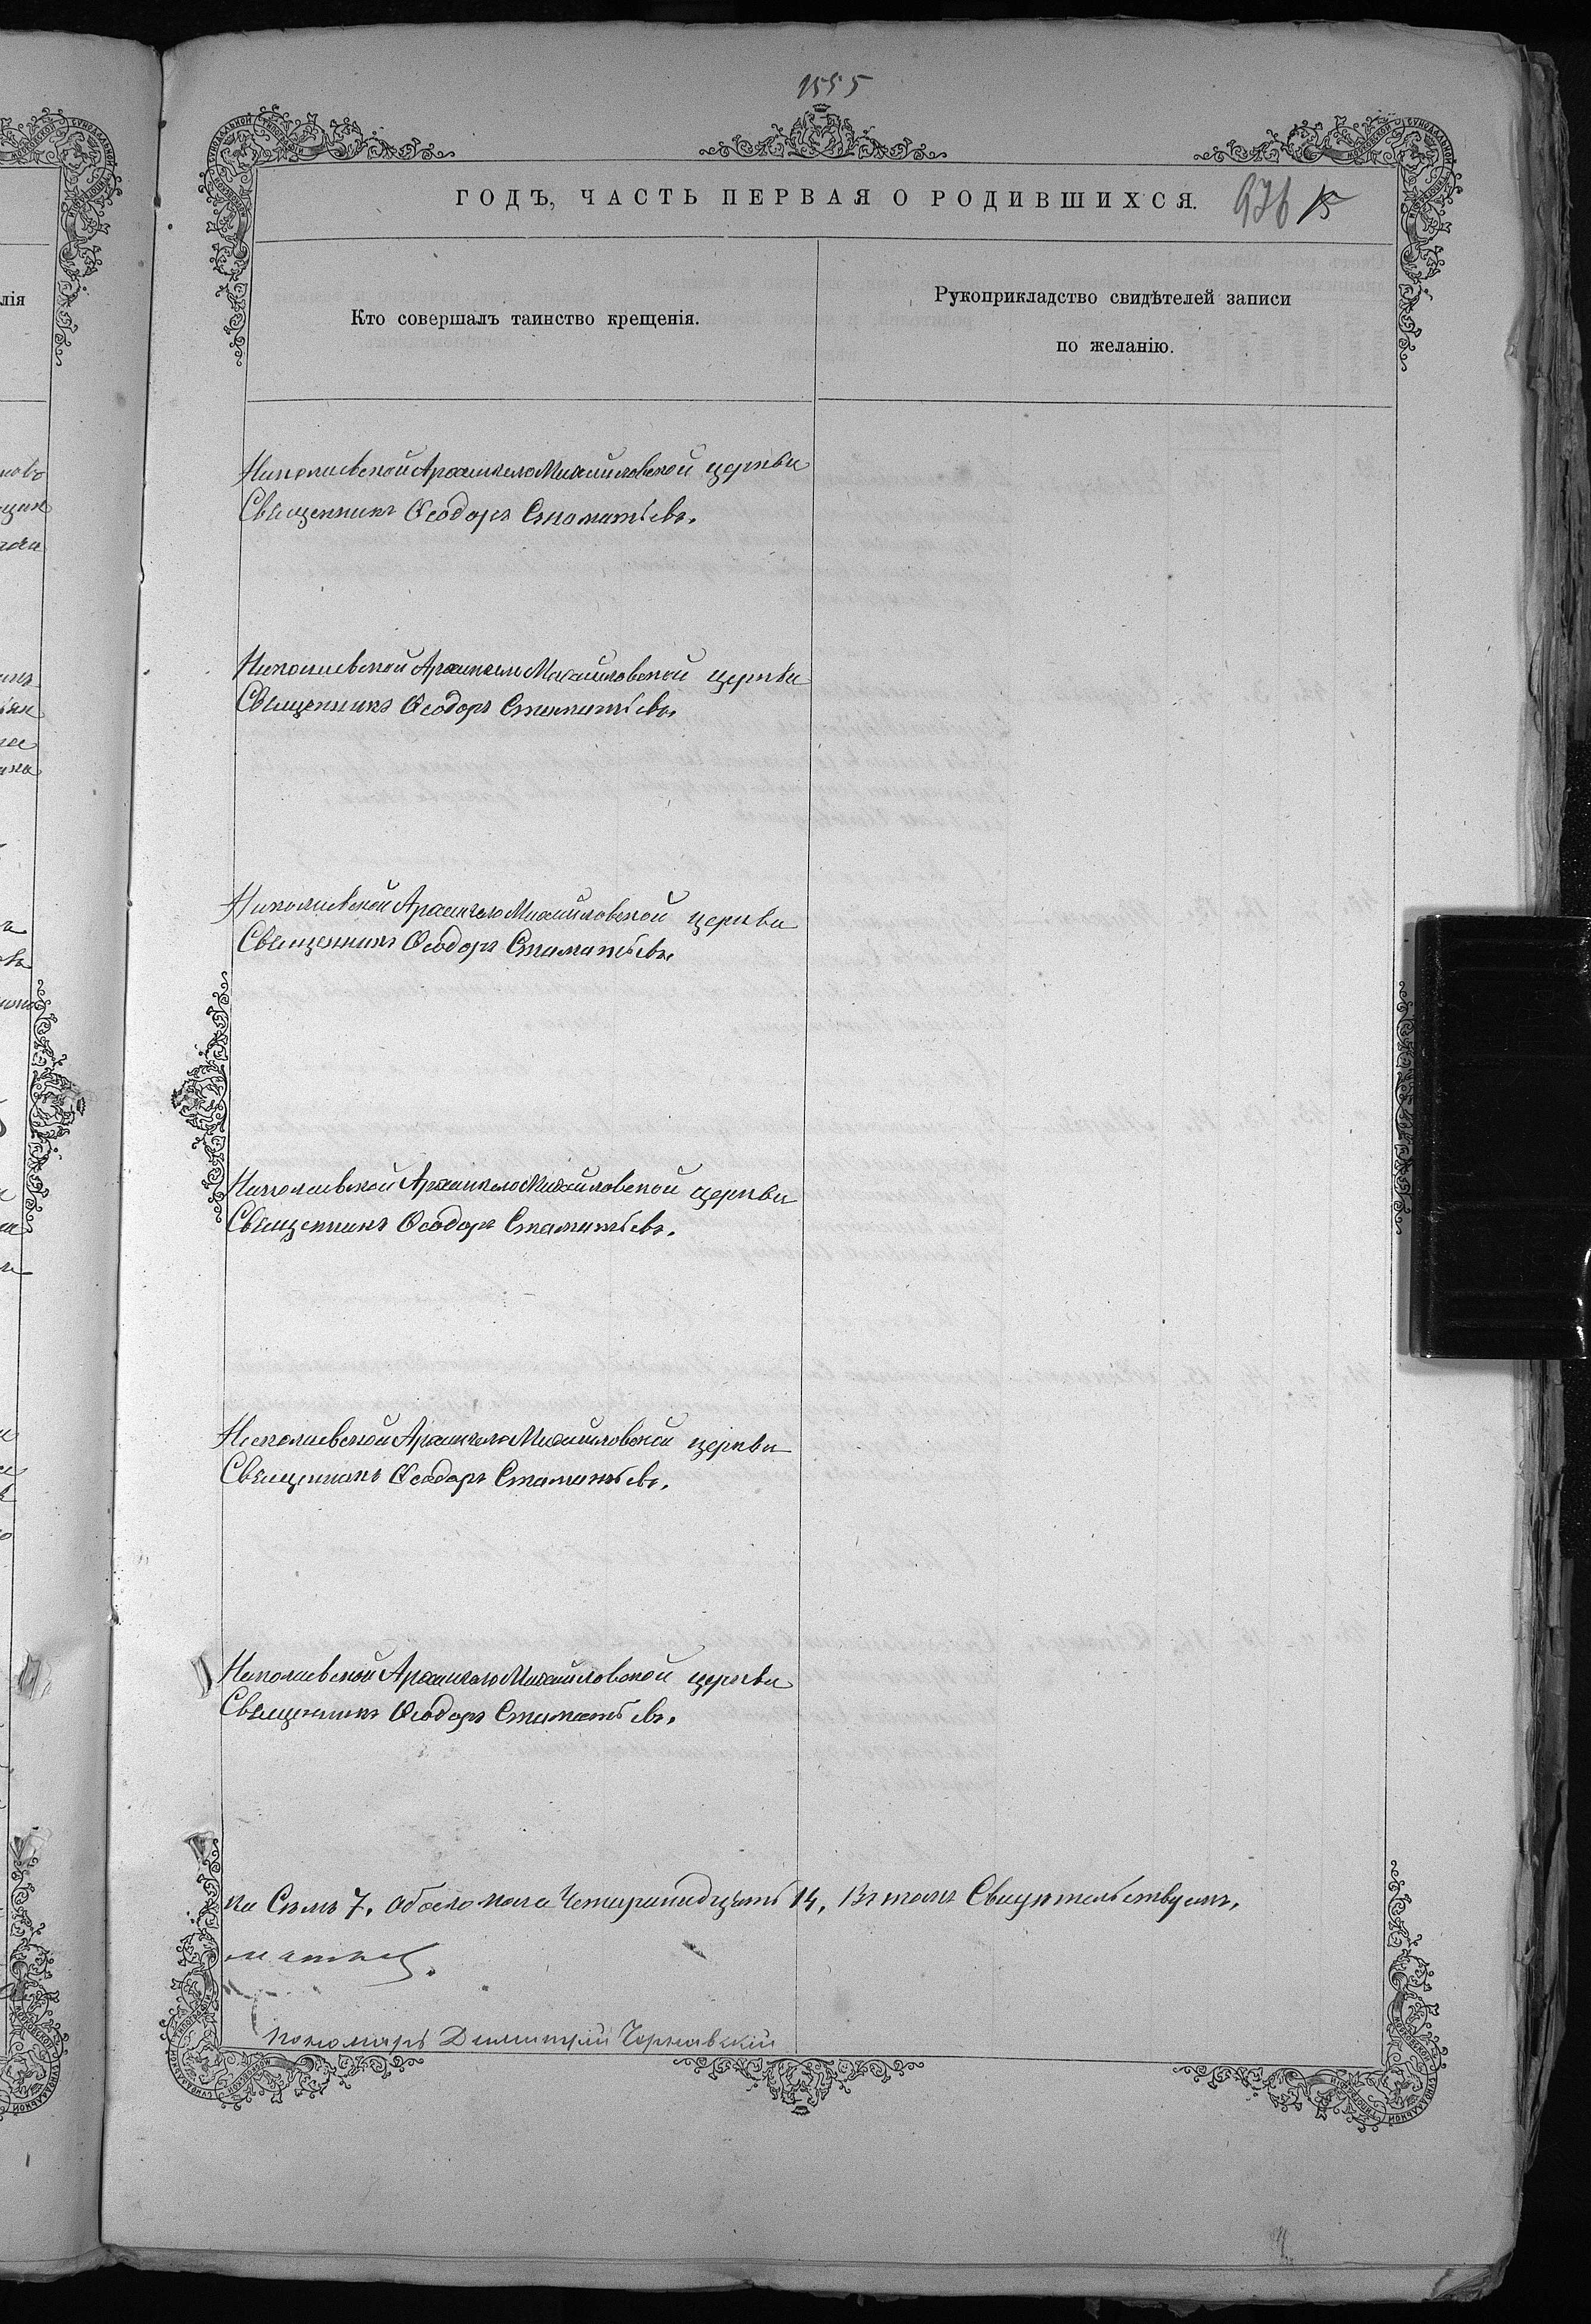 1555
ГОДЪ, ЧАСТЬ ПЕРВАЯ О РОДИВШИХСЯ.
976 15
Кто совершалъ таинство крещенія.
Рукоприкладство свидѣтелей записи
по желанію.
Николаевской АрхангелоМихайловской церкви
Священникъ Ѳеодоръ Стаматьевъ.
Николаевской АрхангелоМихайловской церкви
Священникъ Ѳеодоръ Стаматьевъ.
Николаевской АрхангелоМихайловской церкви
Священникъ Ѳеодоръ Стаматьевъ.
Николаевской АрхангелоМихайловской церкви
Священникъ Ѳеодоръ Стаматьевъ.
Николаевской АрхангелоМихайловской церкви
Священникъ Ѳеодоръ Стаматьевъ.
Николаевской АрхангелоМихайловской церкви
Священникъ Ѳеодоръ Стаматьевъ.
ка Семь 7, обоего пола Четырнадцать 14, Въ томъ Свидѣтельствуемъ,
Пономарь Димитрій Чернявскій
лія